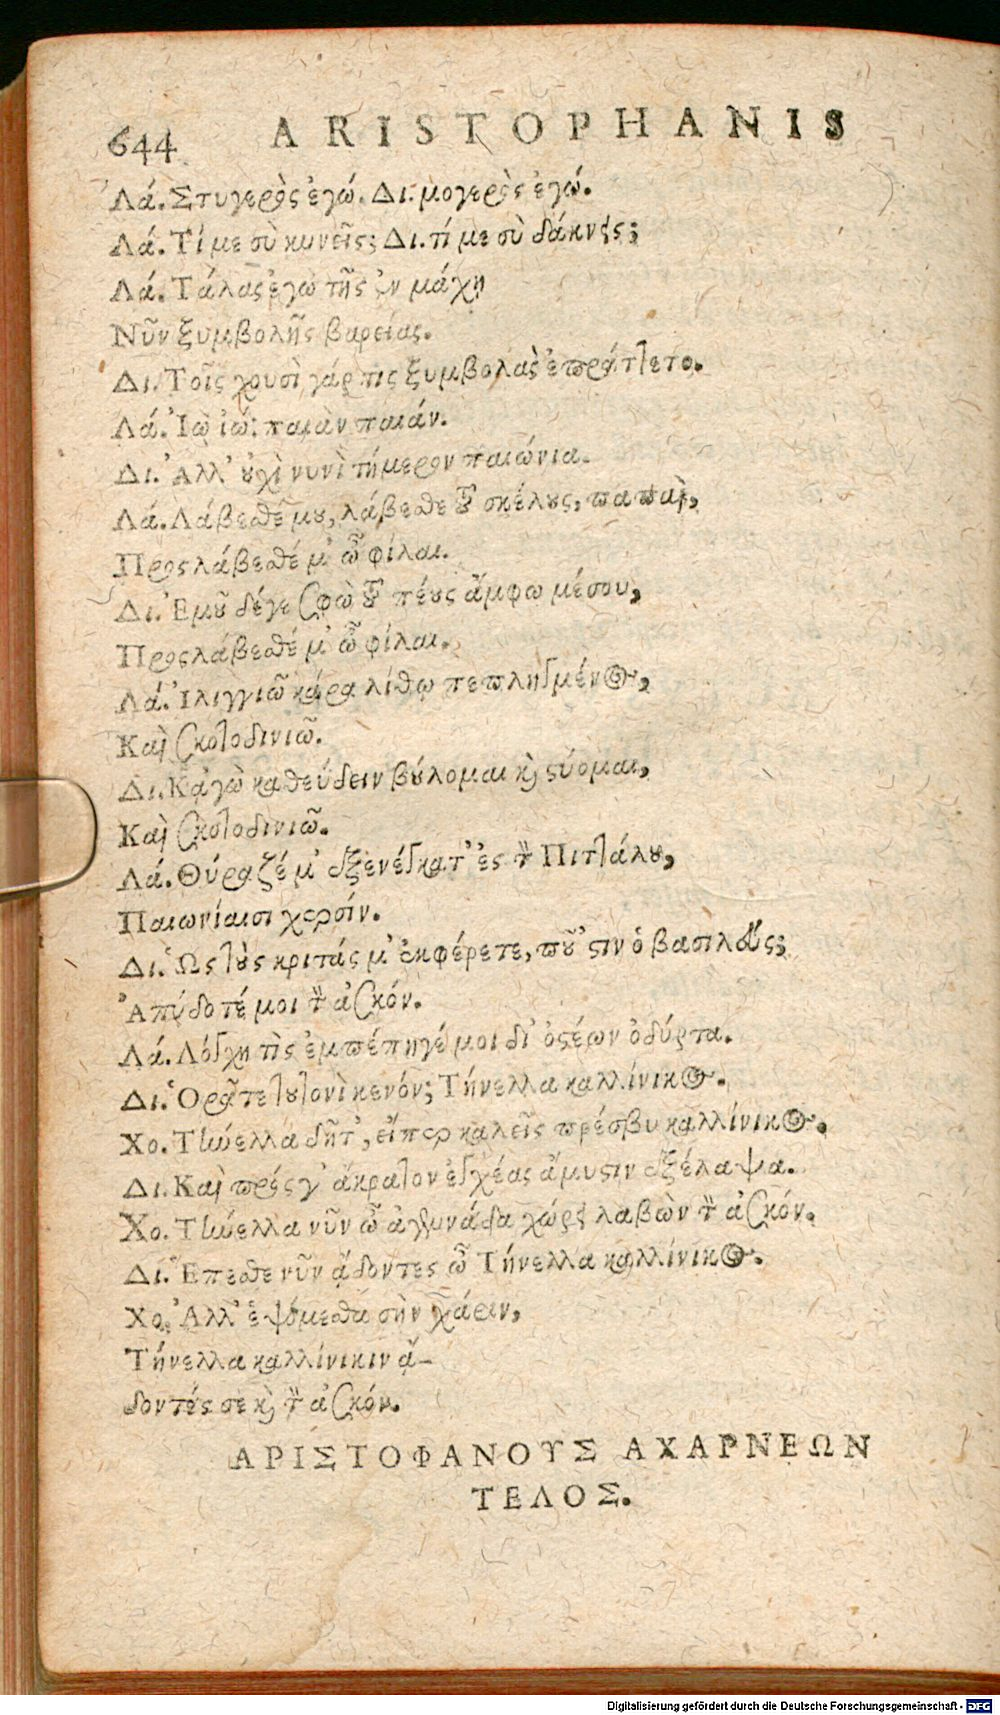 644 ARISTOPHANIS
Λά. Στυγερὸς ἐγώ. Δι. μογερὸς ἐγώ.
Λά. Τί με σὺ κυνεῖς; Δι. τί με σὺ δάκνεις;
Λά. Τάλας ἐγὼ τῆς ἐν μάχῃ
Νῦν ξυμβολῆς βαρείας.
Δι. Τοῖς χουσὶ γάρ τις ξυμβολὰς ἐπράττετο.
Λά. Ἰὼ ἰώ: παιὰν παιάν.
Δι. Ἀλλ' οὐχὶ νυνὶ τήμερον παιώνια.
Λά. Λάβεσθέ μου, λάβεσθε τοῦ σκέλους, παπαῖ,
Προςλάβεσθέ μ' ὦ φίλαι.
Δι. Ἐμοῦ δέγε σφὼ τοῦ πέους ἄμφω μέσου,
Προςλάβεσθέ μ' ὦ φίλαι.
Λά. Ἰλιγγιῶ κάρα λίθῳ πεπληγμένος,
Καὶ σκοτοδινιῶ.
Δι. Κᾀγὼ καθεύδειν βούλομαι καὶ στύομαι,
Καὶ σκοτοδινιῶ.
Λά. Θύραζέ μ' ἐξενέγκατ' ἐς τοῦ Πιττάλου,
Παιωνίαισι χερσίν.
Δι. Ὡς τοὺς κριτάς μ' ἐκφέρετε, ποῦ 'στιν ὁ βασιλεύς;
Ἀπόδοτέ μοι τὸν ἀσκόν.
Λά. Λόγχη τὶς ἐμπέπηγέ μοι δι' ὀστέων ὀδύρτα.
Δι. Ὁρᾶτε τουτονὶ κενόν; Τήνελλα καλλίνικος.
Χο. Τήνελλα δῆτ', εἴπερ καλεῖς πρέσβυ καλλίνικος.
Δι. Καὶ πρός γ' ἄκρατον ἐγχέας ἄμυστιν ἐξέλαψα.
Χο. Τήνελλα νῦν ὦ χώρει λαβὼν τὸν ἀσκόν.
Δι. Ἕπεσθε νῦν ᾄδοντες ὦ Τήνελλα καλλίνικος.
Χο. Ἀλλ' ἑψόμεθα σὴν χάριν,
Τήνελλα καλλίνικιν ᾄ-
δοντές σε καὶ τὸν ἀσκόν.
ΑΡΙΣΤΟΦΑΝΟΥΣ ΑΧΑΡΝΕΩΝ
ΤΕΛΟΣ.
Digitalisierung gefördert durch die Deutsche Forschungsgemeinschaft - DFG